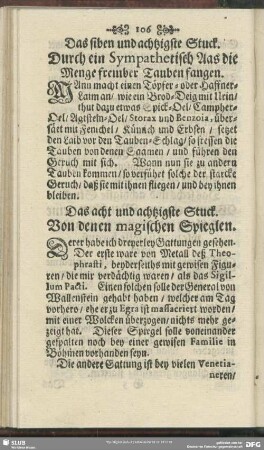 106
Das siben und achtzigste Stuck.
Durch ein Sympathetisch Aas die
Menge frembder Tauben fangen.
MAnn macht einen Töpfer- oder Haffner-
Laim an / wie ein Brod-Deig mit Urin /
thut dazu etwas Spick-Oel / Campher-
Oel / Agtstein-Oel / Storax und Benzoia, über-
sät mit Fenchel / Kümich und Erbsen / setzt
den Laib vor den Tauben-Schlag / so fressen die
Tauben von denen Saamen / und führen den
Geruch mit sich. Wann nun sie zu andern
Tauben kommen / so verführt solche der starcke
Geruch / daß sie mit ihnen fliegen / und bey ihnen
bleiben.
Das acht und achtzigste Stuck.
Von denen magischen Spieglen.
DErer habe ich dreyerley Gattungen gesehen.
Der erste ware von Metall deß Theo-
phrasti, beyderseiths mit gewisen Figu-
ren / die mir verdächtig waren / als das Sigil-
lum Pacti. Einen solchen solle der General von
Wallenstein gehabt haben / welcher am Tag
vorhero / ehe er zu Egra ist massacriert worden /
mit einer Wolcken überzogen / nichts mehr ge-
zeigt hat. Dieser Spiegel solle voneinander
gespalten noch bey einer gewisen Familie in
Böhmen vorhanden seyn.
Die andere Gattung ist bey vielen Venetia-
neren /
SLUB